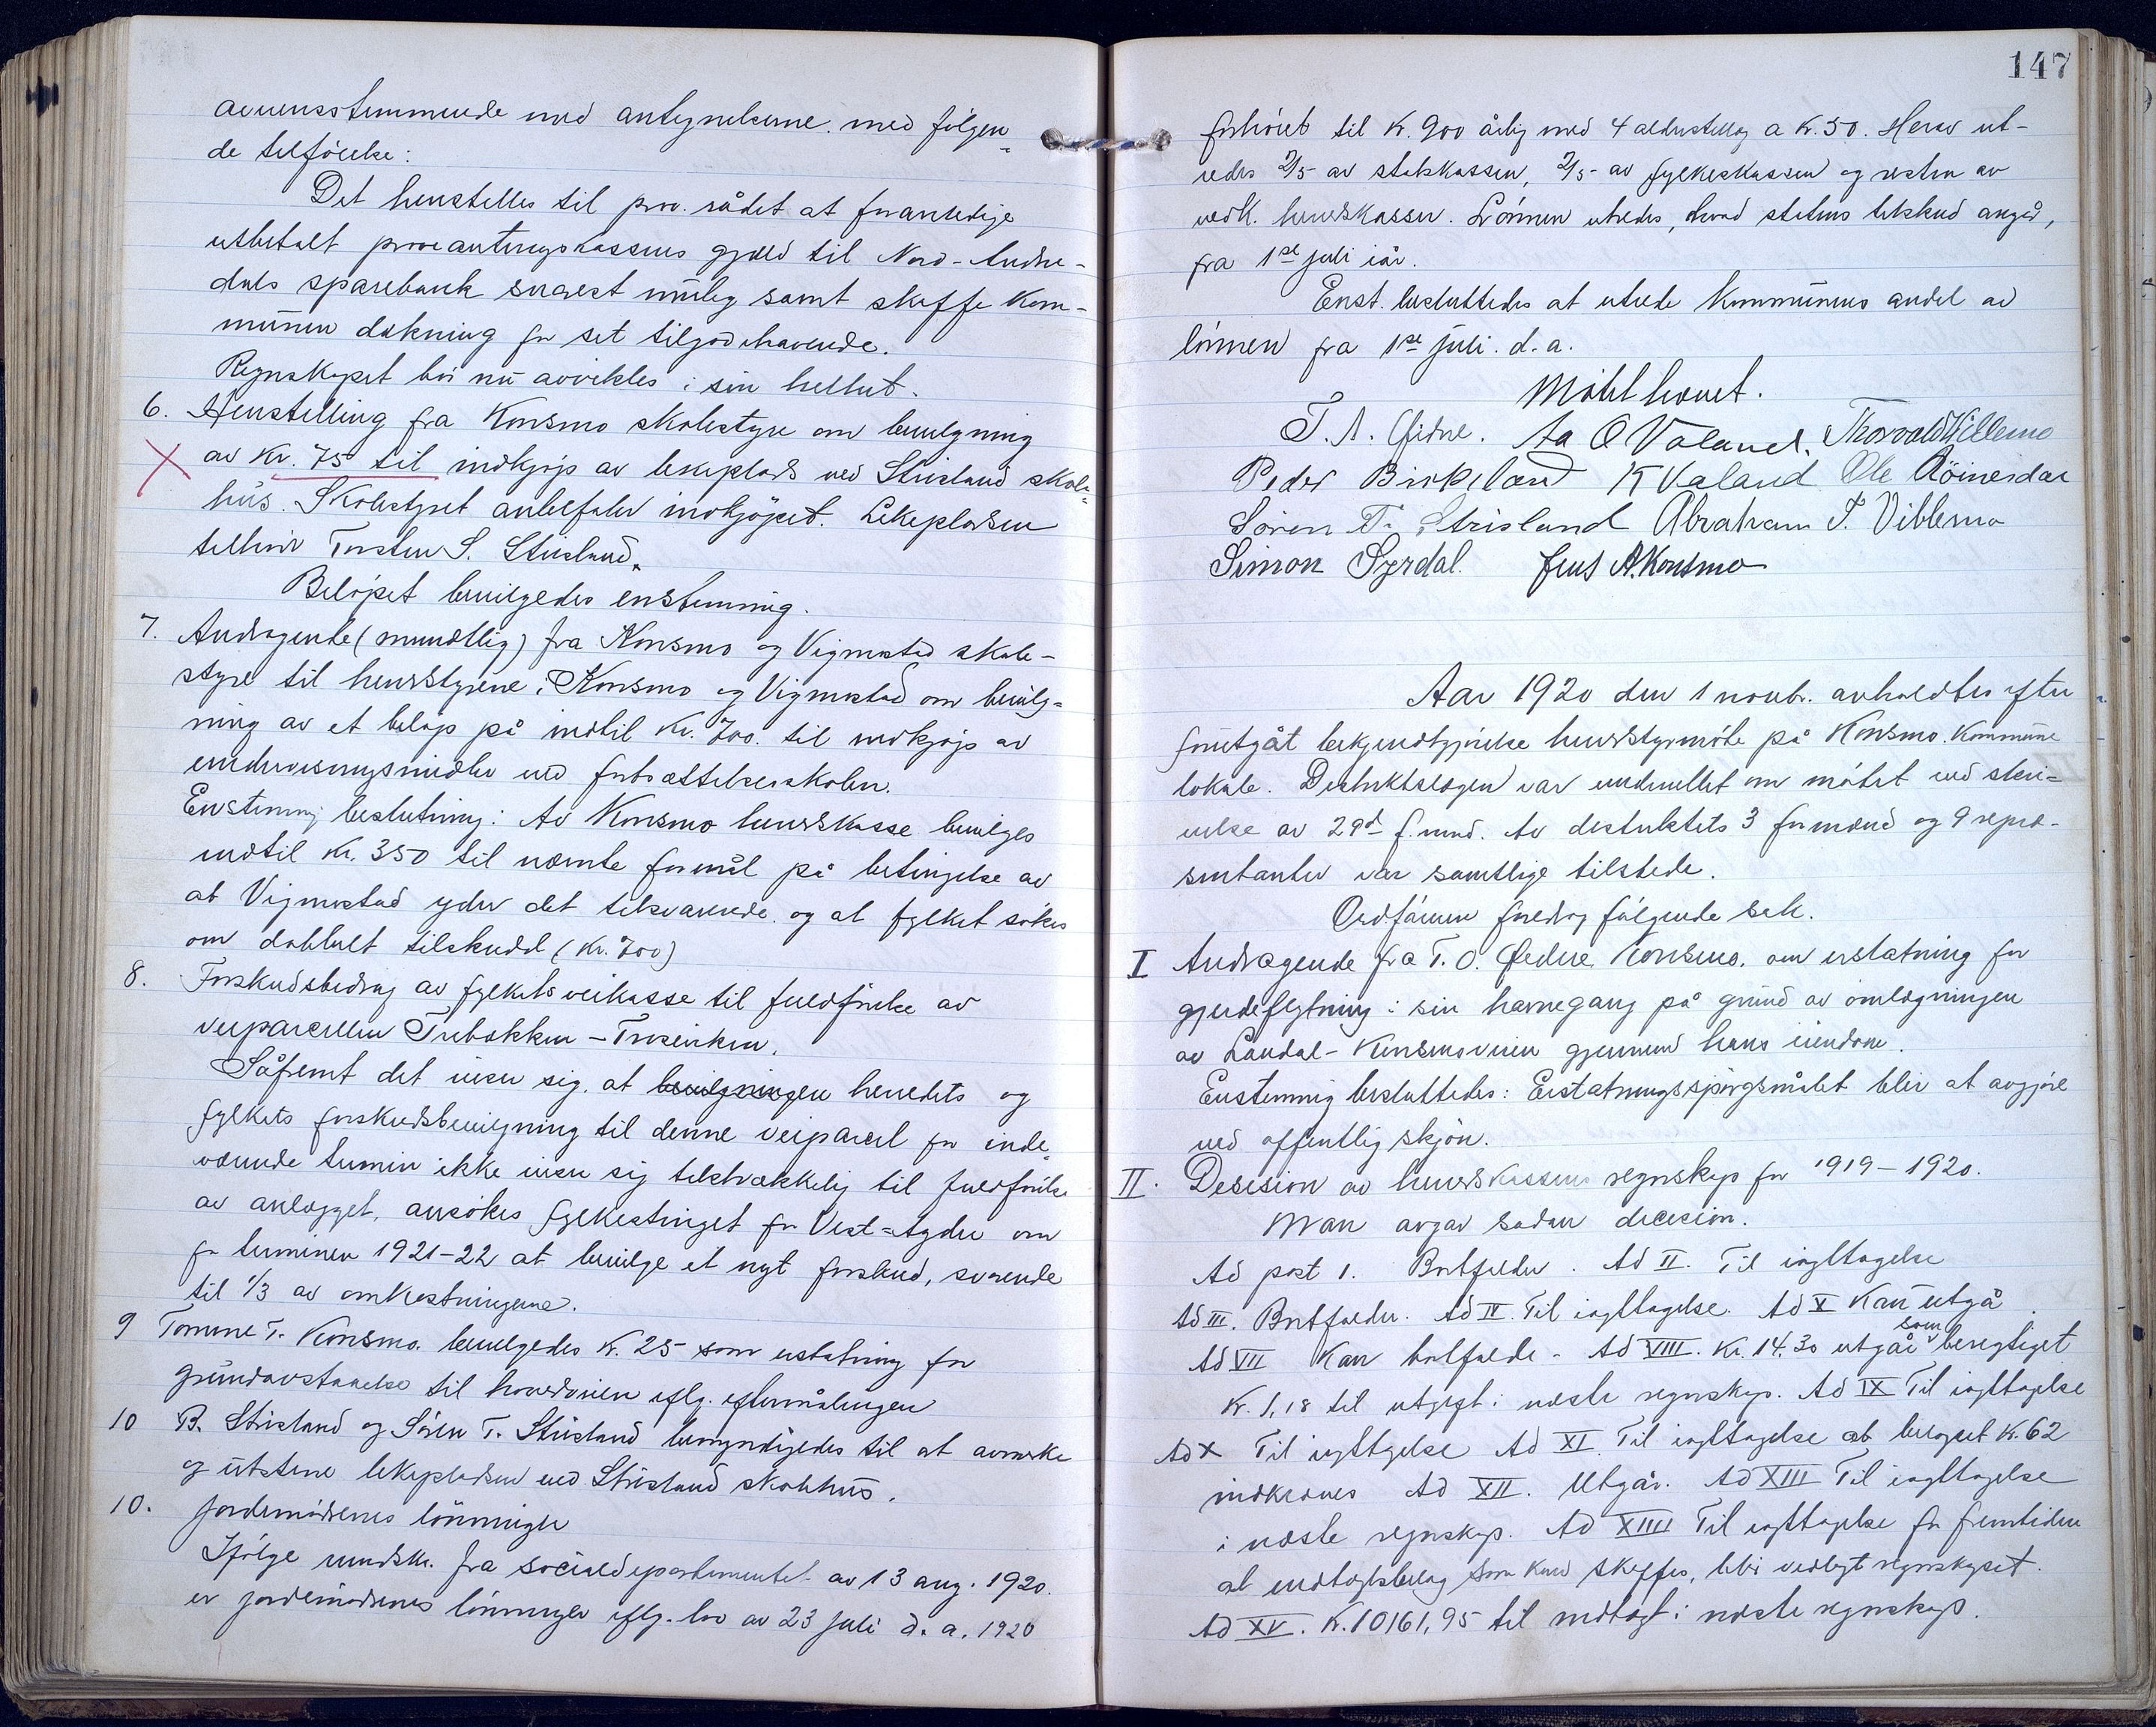 overensstemmende med antegnelserne med følgen-
de tilføielse:
Det henstilles til prov. rådet at foranledige
utbetalt provianteringskassens gjæld til Nord-Audne-
dals sparebank snarest mulig samt skaffe kom-
munen dækning for set tilgodehavende.
Regnskapet bör nu avvikles i sin helhet.
6. Henstilling fra Konsmo skolestyre om bevilgning
av Kr. 75 til indkjøp av lekeplads ved Strisland skole-
hus. Skolestyret anbefaler indkjöpet. Lekepladsen
tilhör Torsten S. Strisland.
Belöpet bevilgedes enstemmig.
7. Andragende (mundtlig) fra Konsmo og Vigmostad skole-
styre til herredsstyrene i Konsmo og Vigmostad om bevilg-
ning av et belöp på indtil Kr. 700. til indkjöp av
undervisningsmidler ved fortsættelsesskolen.
Enstemmig beslutning: Av Konsmo herredskasse bevilges
indtil Kr. 350 til nævnte formål på betingelse av
at Vigmostad yder det tilsvarende og at fylket sökes
om dobbelt tilskudd (Kr. 700)
8. Forskudsbidrag av fylkets veikasse til fuldförelse av
veiparcellen Tubakken - Troseinken.
Såfremt det viser sig at bevilgningen herredets og
fylkets forskudsbevilgning til denne veiparcel for inde-
værende termin ikke viser sig tilstrækkelig til fuldförelse
av anlægget, ansökes fylkestinget for Vest-Agder om
for terminen 1921-22 at bevilge et nyt forskud, svarende
til 1/3 av omkostningerne.
9 Tomine T. Konsmo bevilgedes Kr. 25 som erstatning for
grundavstaaelse til hovedveien iflg. eftermålingen
10 B. Strisland og Sören T. Strisland bemyndigedes til at avmerke
og utstene lekepladsen ved Strisland skolehus.
10. Jordmödrenes lönninger
Ifölge rundskr. fra socialdepartementet av 13 aug. 1920.
er jordmödrenes lönninger iflg. lov av 23 juli d. a. 1920
147
forhöiet til Kr. 900 årlig med 4 alderstillæg a Kr. 50. Herav ut-
redes 2/5 av statskassen, 2/5 av fylkeskassen og resten av
vedk. herredskasser. Lönnen utredes, hvad statens tilskud angår,
fra 1ste juli iår.
Enst. besluttedes at utrede kommunens andel av
lönnen fra 1ste juli d. a.
Mötet hævet.
T. A. Øidne. Aa O Valand. Thorvald Villemo
Peder Birkeland K Valand Ole Röinesdal
Sören T. Strisland Abraham T. Viblemo
Simon Syrdal. Jens A. Konsmo
Aar 1920 den 1 novbr. avholdtes efter
forutgåt bekjendtgjörelse herredsstyrmöte på Konsmo kommune
lokale. Distriktslægen var underrettet om mötet ved skri-
velse av 29d f. mnd. Av distriktets 3 formænd og 9 repræ-
sentanter var samtlige tilstede.
Ordföreren foredrog fölgende sak.
I Andragende fra T. O. Øidne Konsmo. om erstatning for
gjerdeflytning i sin havnegang på grund av omlægningen
av Laudal-Konsmoveien gjennem hans eiendom.
Enstemmig besluttedes: Erstatningsspörgsmålet blir at avgjöre
ved offentlig skjön.
II. Desision av herredskassens regnskap for 1919-1920.
Man avgav sådan decision.
Ad post 1. Bortfalder. Ad II. Til iagttagelse
Ad III. Bortfalder. Ad IV. Til iagttagelse. Ad X Kan utgå.
Ad VII Kan bortfalde. Ad VIII. Kr. 14.30 utgår som beregtiget
Kr. 1,18 til utgift i næste regnskap. Ad IX Til iagttagelse
Ad X Til iagttagelse Ad XI. Til iagttagelse at belöpet Kr. 62
indkræves Ad XII. Utgår. Ad XIII Til iagttagelse
i næste regnskap. Ad XIIII Til iagttagelse for fremtiden
at indtægtsbelag som kan skaffes, blir vedlagt regnskapet.
Ad XV. Kr. 10161,95 til indtægt i næste regnskap.